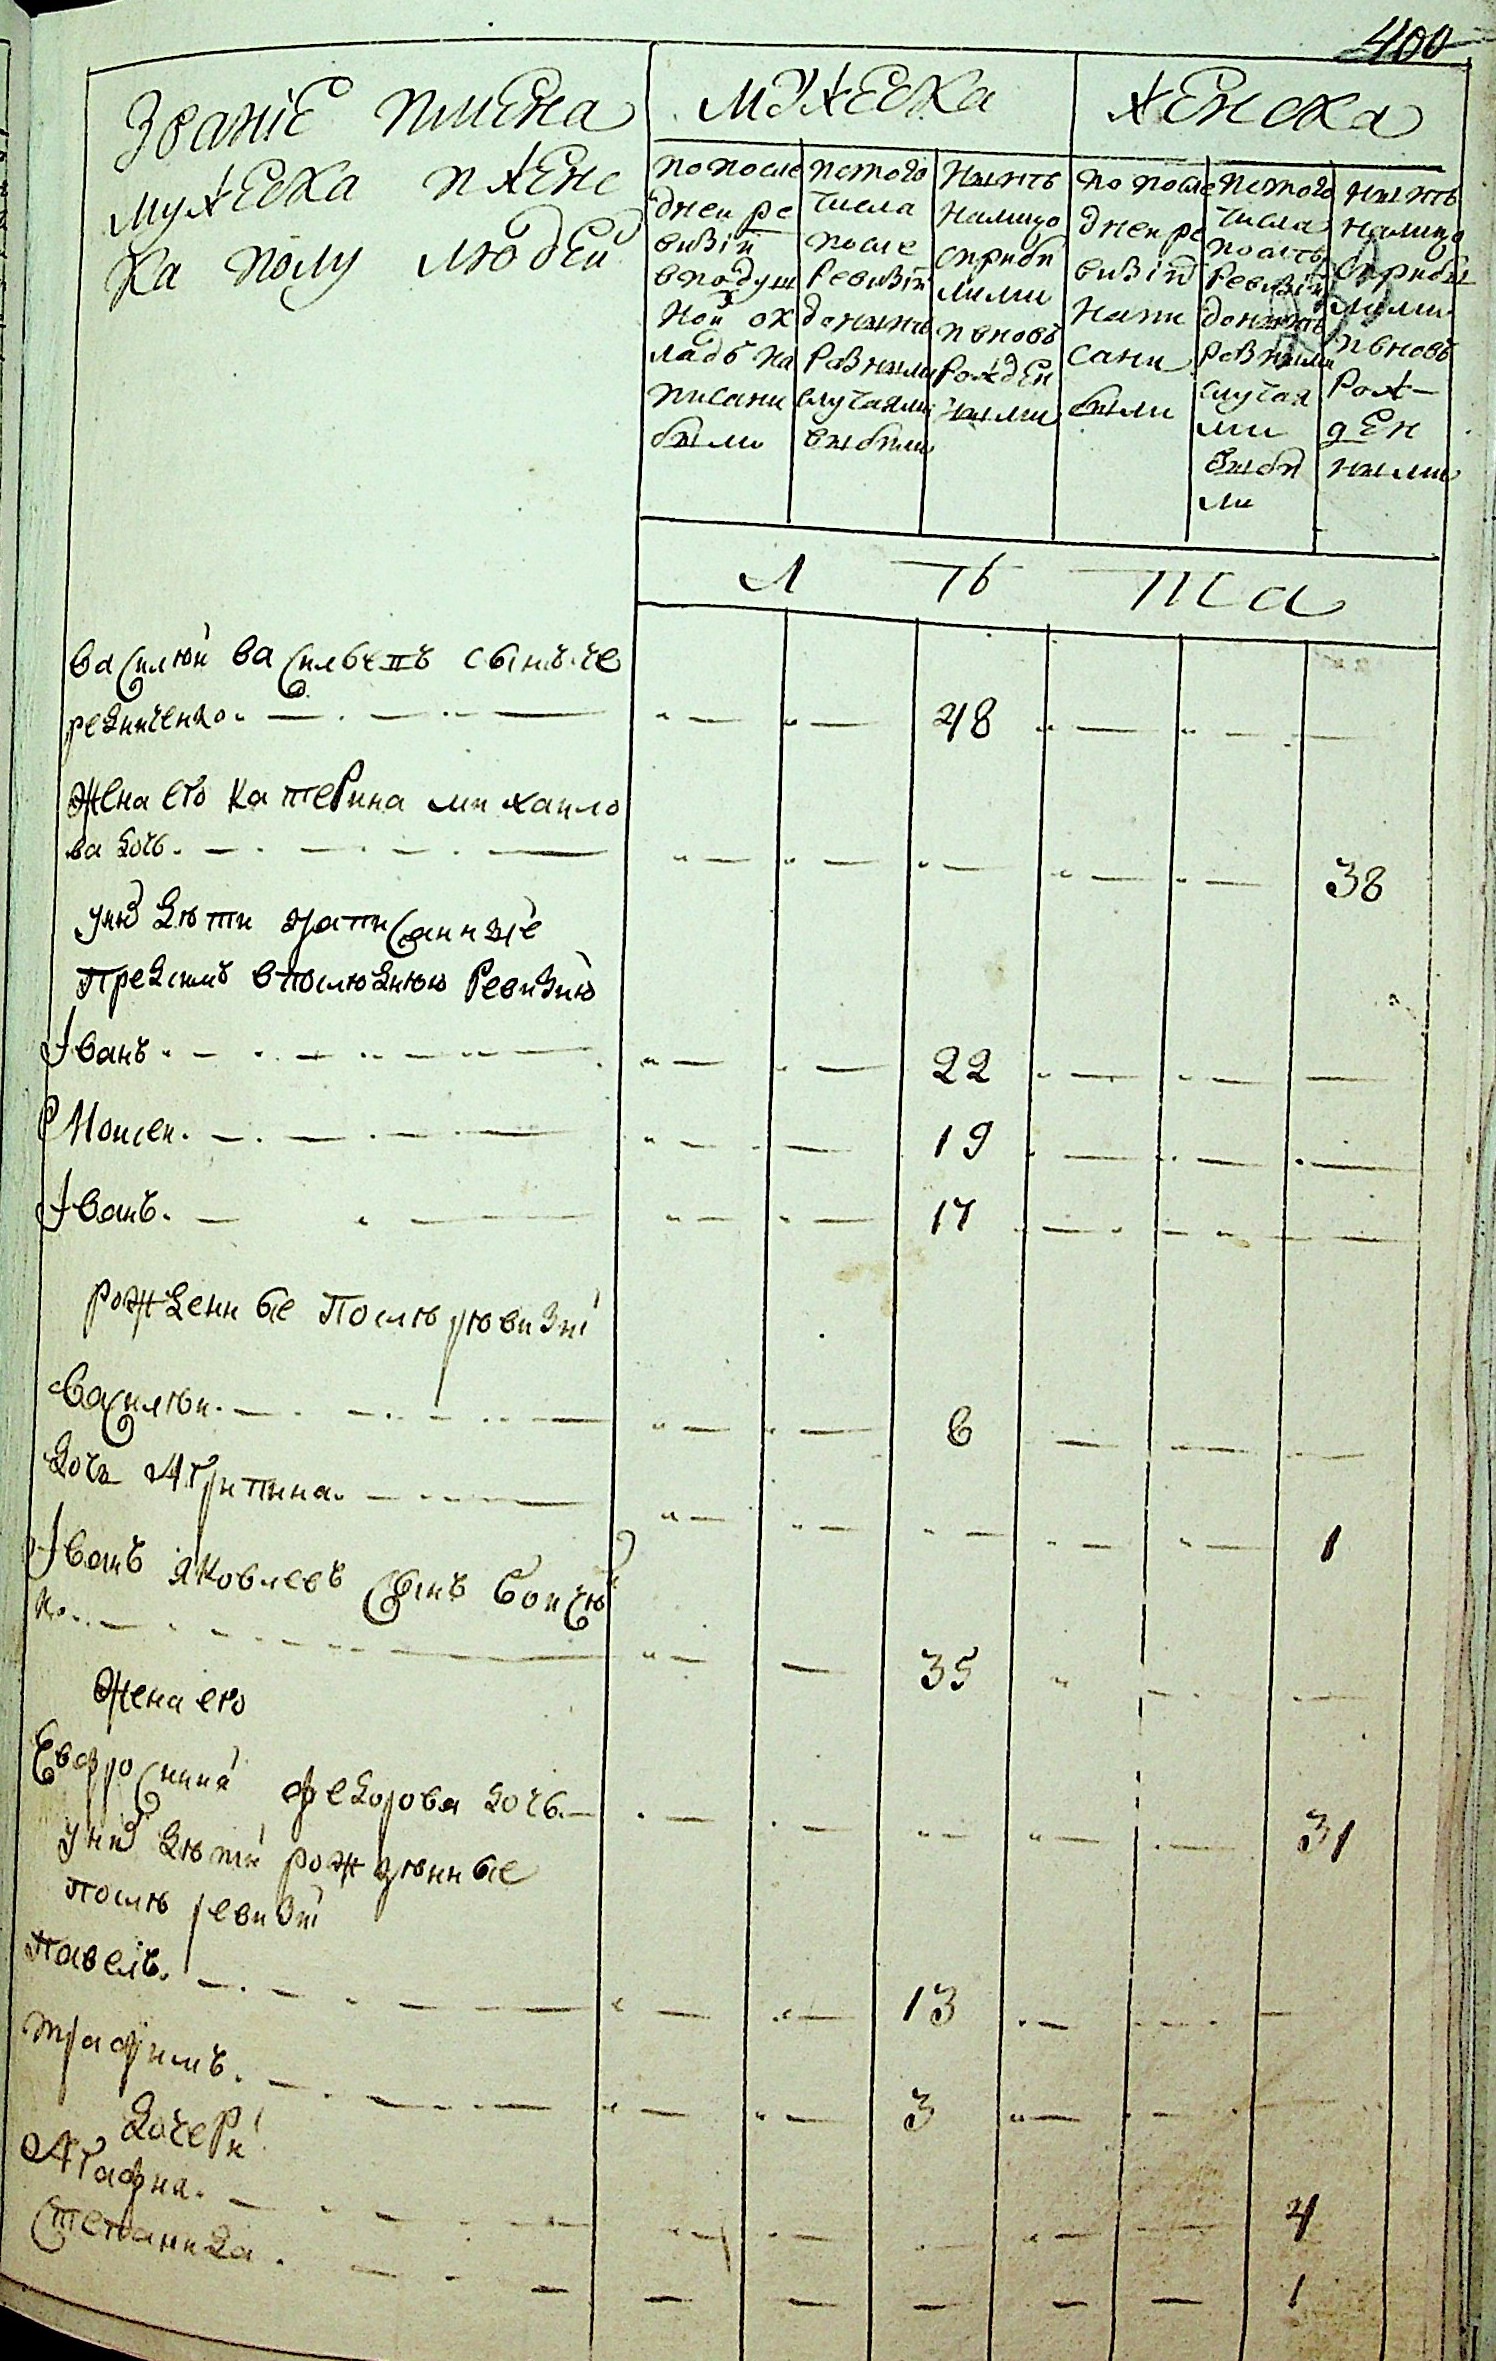 400
Званіе иимена
мужеска ижене
ка полу людей
МУЖЕСКА
ЖЕНСКА
по после
дней ре
визіи
вподуш
ной ок
ладъ на
писани
были
исто́го
числа
после
ревизіи
до нынѣ
разными
случаями
выбыли
Нынѣ
налицо
сприбы
лыми
ивновь
рожден
ными
по после
дней ре
визіи
напи
сани
были
исто́го
числа
послѣ
ревизіи
донынѣ
разными
случая
ми
выбы
ли
нынѣ
налицо
сприбы
лыми
ивновь
рож-
ден
ными
Л ѣ та
василѣй васильевъ сынъ че
редниченко 48
жена его катерина михаило
ва дочь 38
унихъ дѣти записанные
предсимъ впослѣднюю ревизию
Іванъ 22
Моисей 19
Іванъ 17
рожденные послѣ рѣвизіи
василѣй 6
дочь Агрипина 1
Іванъ яковлевъ сынъ бойчѣн
ко 35
жена его
Евфросиния федорова дочь 31
унихъ дѣти рождѣнные
послѣ ревизіи
павелъ 13
трафимъ 3
дочери
Агафиа 4
степанида 1